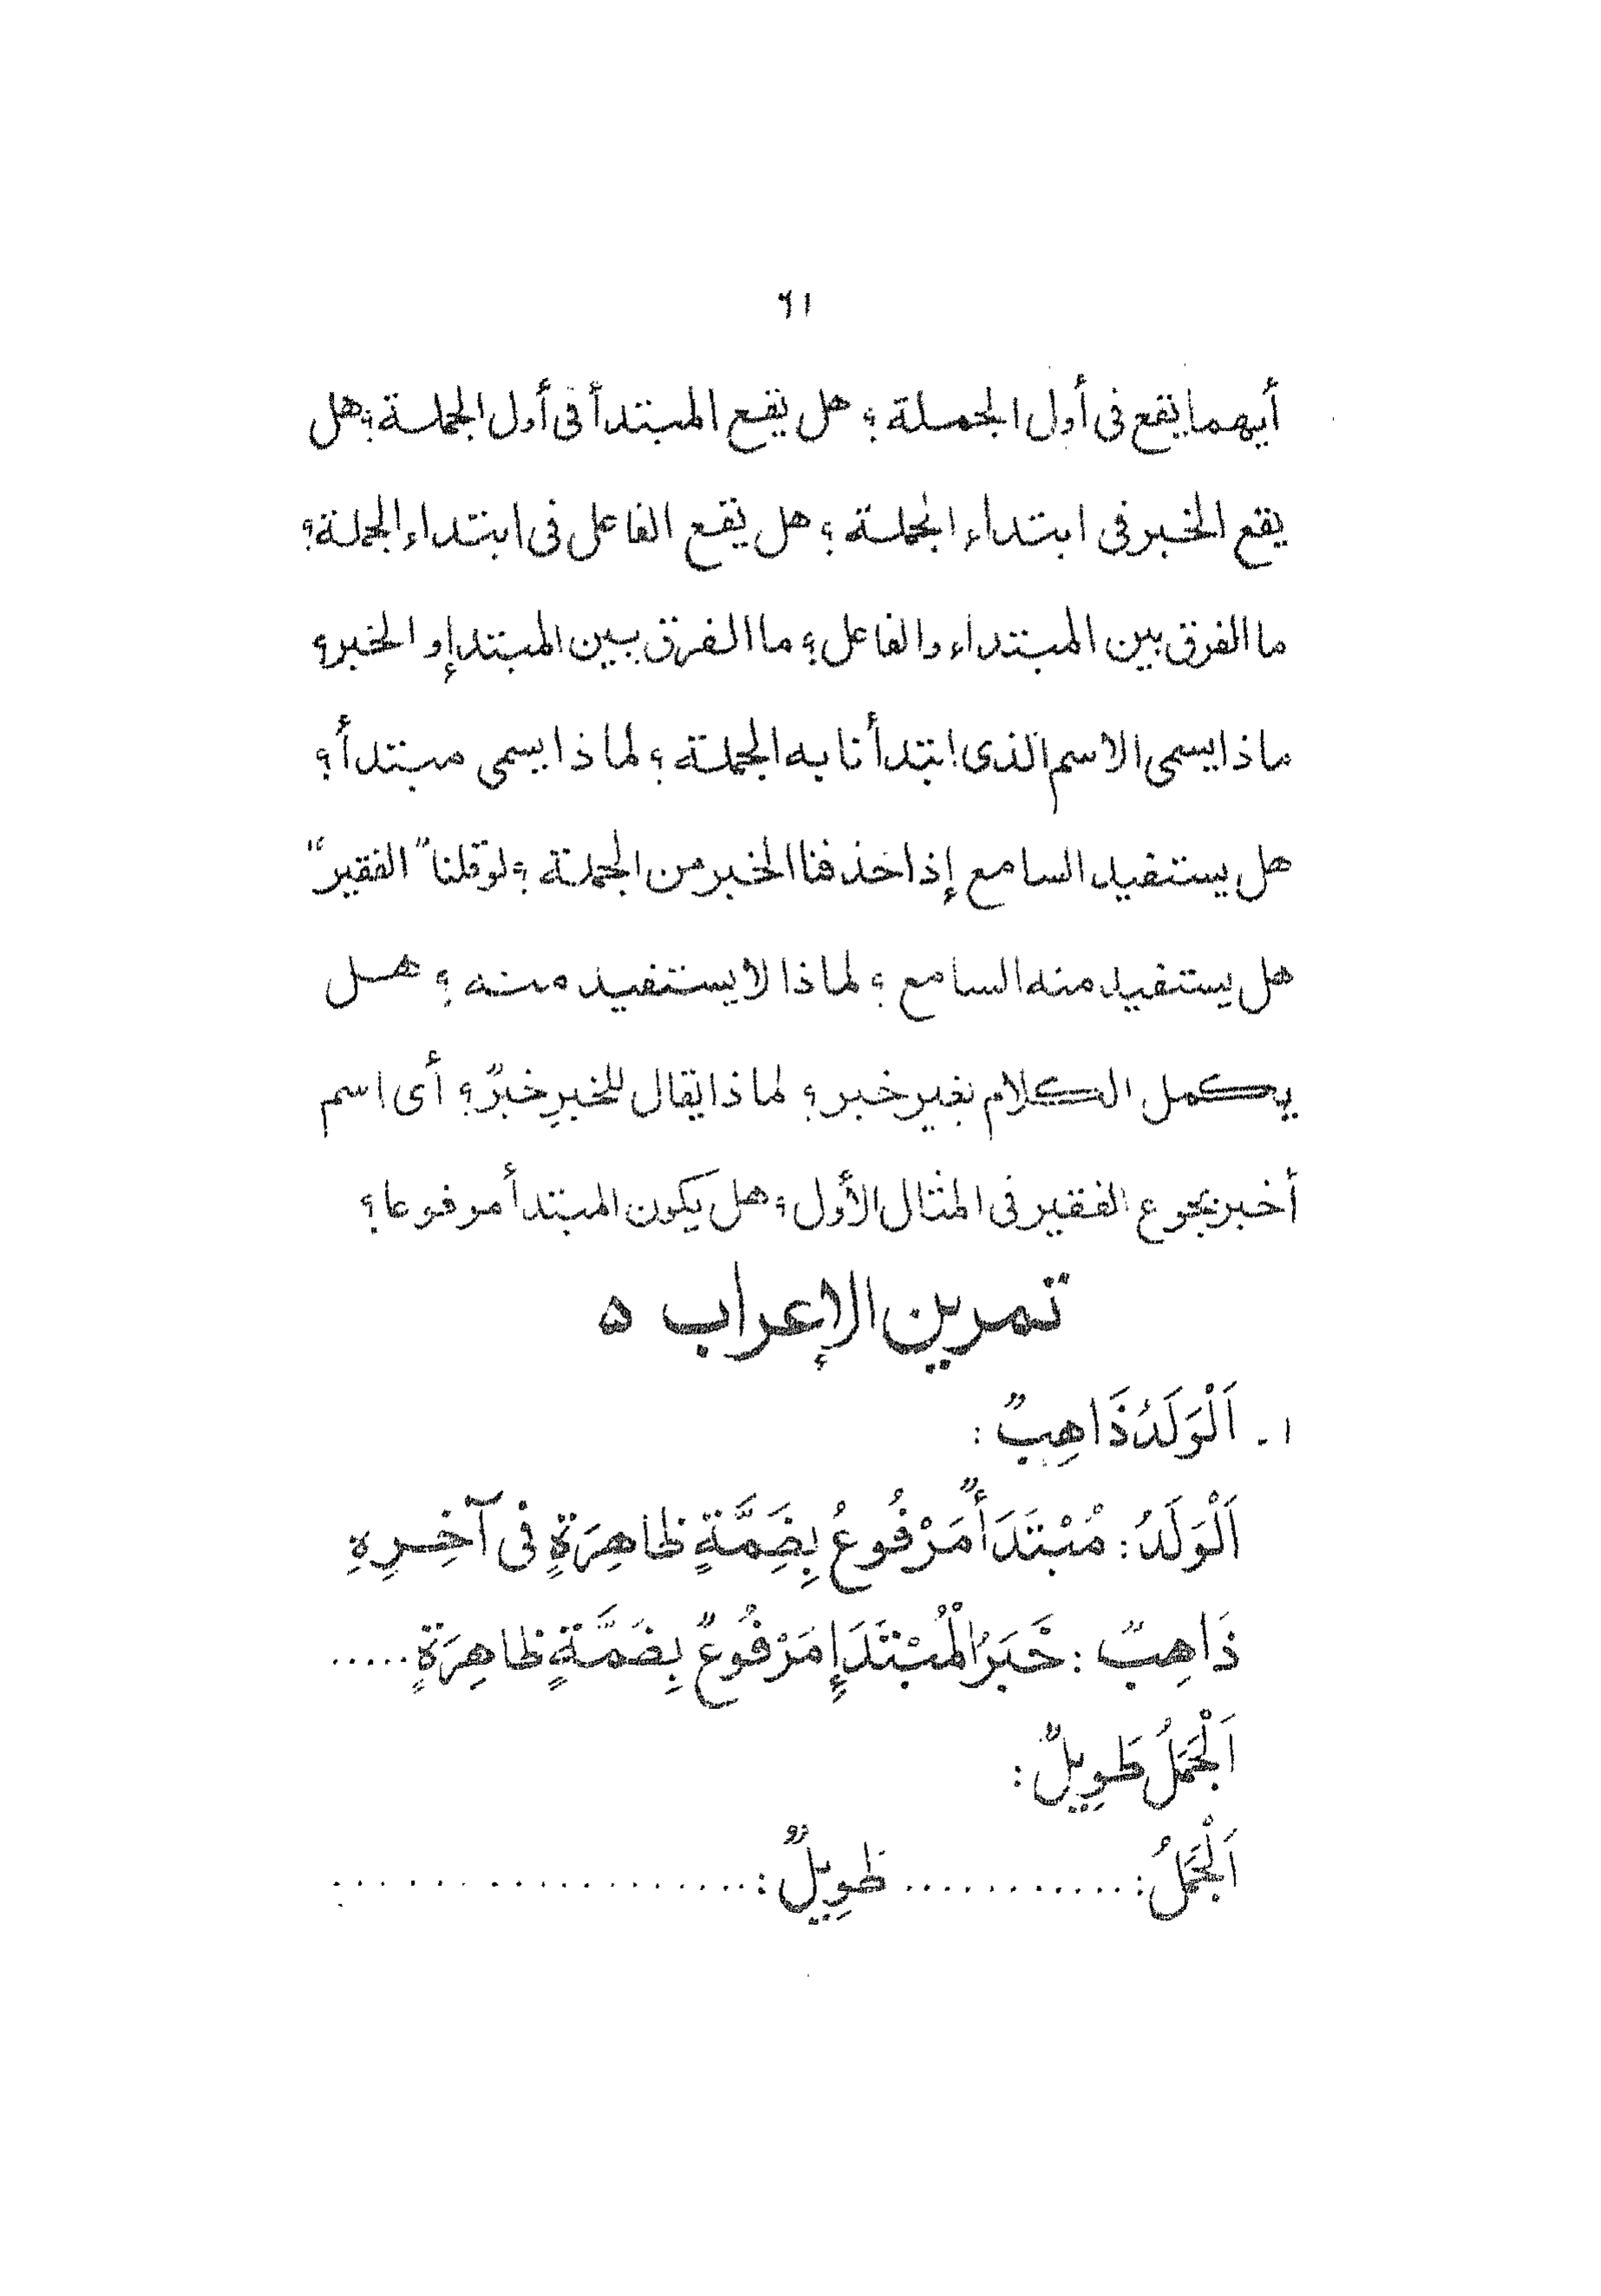 ٦١
أيهما يقع فى أول الجملة ؟ هل يقع المبتدأ فى أول الجملة ؟ هل
يقع الخبر فى ابتداء الجملة ؟ هل يقع الفاعل فى ابتداء الجملة ؟
ما الفرق بين المبتداء والفاعل ؟ ما الفرق بين المبتدإ و الخبر ؟
ماذا يسمى الاسم الذى ابتدأنا به الجملة ؟ لماذا يسمى مبتدأ ؟
هل يستفيد السامع إذا حذفنا الخبر من الجملة ؟ لو قلنا " الفقير "
هل يستفيد منه السامع ؟ لماذا لا يستفيد منه ؟ هل
يكمل الكلام بغير خبر ؟ لماذا يقال للخبرِ خبرٌ ؟ أى اسم
أخبر بجوع الفقير فى المثال الأول ؟ هل يكون المبتدأ مرفوعا ؟
تمرين الإعراب ٥
١ - اَلْوَلَدُ ذَاهِبٌ :
اَلْوَلَدُ : مُبْتَدَأٌ مَرْفُوعُ بِضَمَّةٍ ظاهِرَةٍ فى آخِرِهِ
ذَاهِبٌ : خَبَرُ الْمُبْتَدَإِ مَرْفُوعٌ بِضَمَّةٍ ظاهِرَةٍ .....
اَلْجَمَلُ طَوِيلٌ :
اَلْجَمَلُ : ........... طَوِيلٌ : ..................